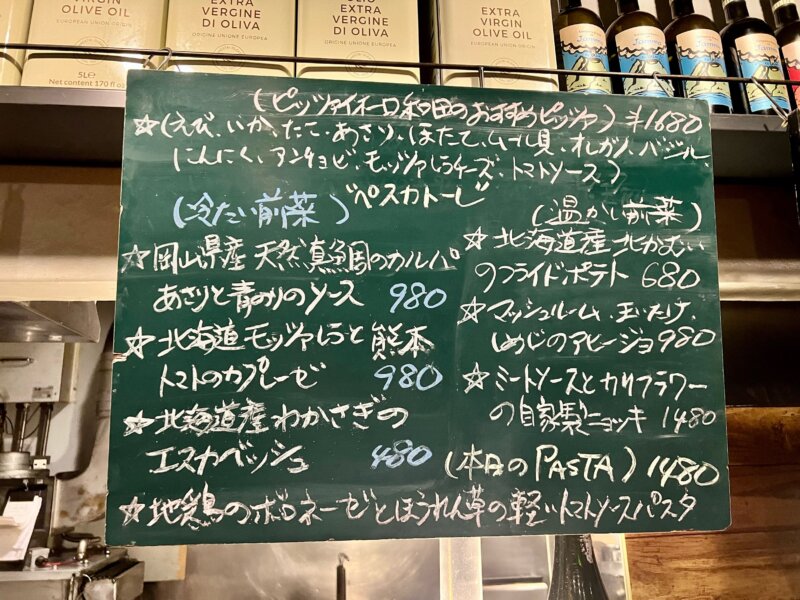 OLIVE OIL
EUROPEAN UNION ORIGIN
5L℮
Net content 170 fl oz
EXTRA
VERGINE
DI OLIVA
ORIGINE UNIONE EUROPEA
EXTRA
VERGINE
DI OLIVA
ORIGINE UNIONE EUROPEA
EXTRA
VIRGIN
OLIVE OIL
EUROPEAN UNION ORIGIN
(ピッツァイオーロ和田のおすすめピッツァ) ¥1680
☆(えび、いか、たこ、あさり、ほたて、ムール貝、オレガノ、バジル、
にんにく、アンチョビ、モッツァレラチーズ、トマトソース)
"ペスカトーレ"
(冷たい前菜)
☆岡山県産 天然真鯛のカルパ
あさりと青のりのソース 980
☆北海道モッツァレラと熊本
トマトのカプレーゼ 980
☆北海道産わかさぎの
エスカベッシュ 480
(温かい前菜)
☆北海道産北かむい
のフライドポテト 680
☆マッシュルーム、まいたけ、
しめじのアヒージョ 980
☆ミートソースとカリフラワー
の自家製ニョッキ 1480
(本日のPASTA) 1480
☆地鶏のボロネーゼとほうれん草の軽いトマトソースパスタ